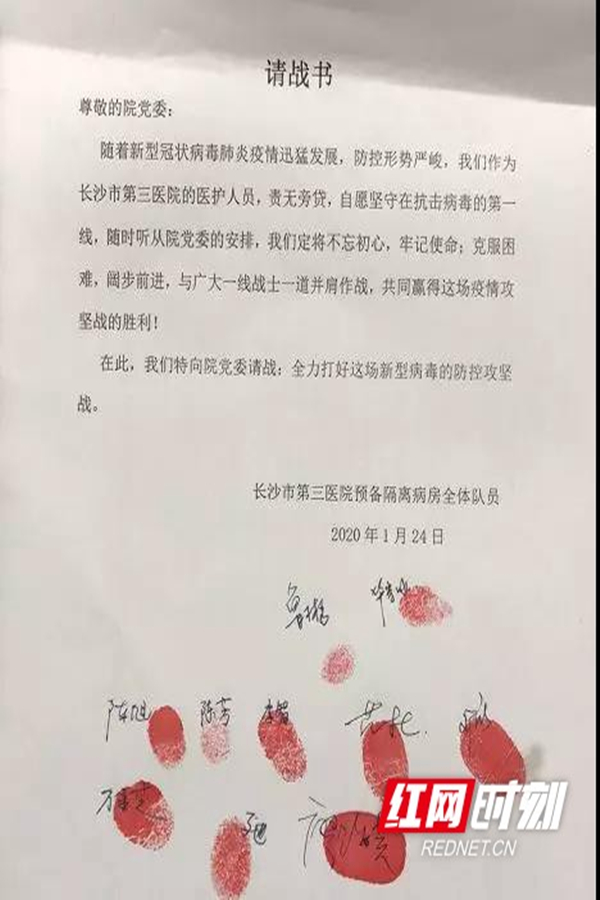 请战书
尊敬的院党委：
随着新型冠状病毒肺炎疫情迅猛发展，防控形势严峻，我们作为
长沙市第三医院的医护人员，责无旁贷，自愿坚守在抗击病毒的第一
线，随时听从院党委的安排，我们定将不忘初心，牢记使命；克服困
难，阔步前进，与广大一线战士一道并肩作战，共同赢得这场疫情攻
坚战的胜利！
在此，我们特向院党委请战：全力打好这场新型病毒的防控攻坚
战。
长沙市第三医院预备隔离病房全体队员
2020年1月24日
陈旭 陈芳 李智
红网时刻
REDNET.CN